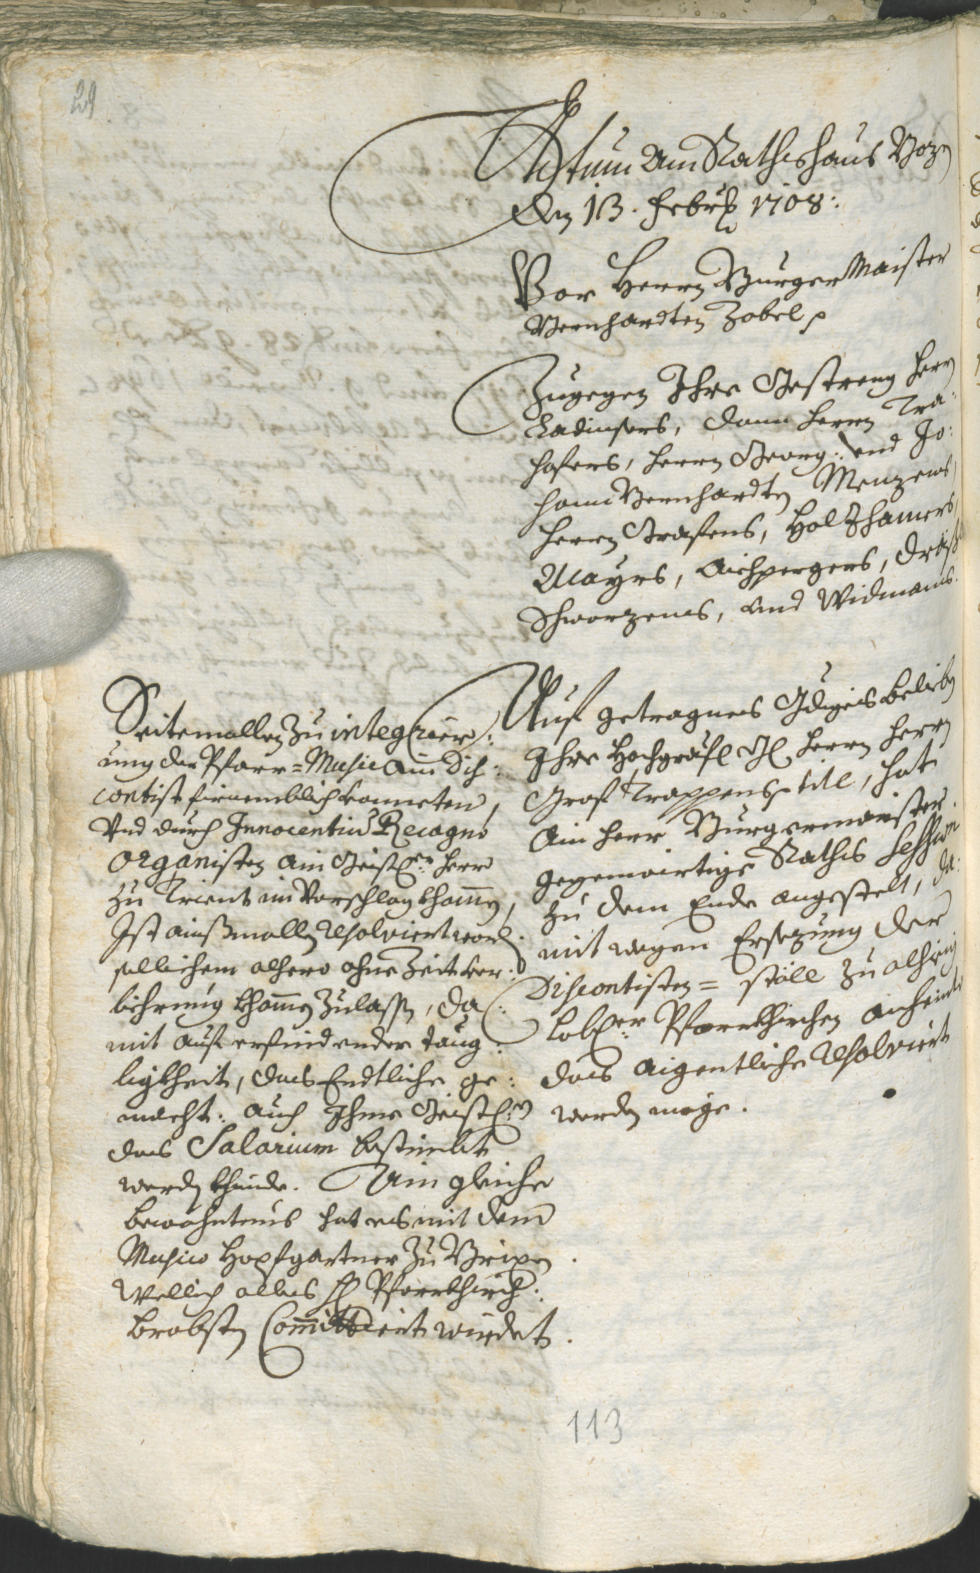 29
Actum Am Rathshaus Bozn
den 13. Febr: 1708:
Vor Herrn Burgermaister
Bernhardten Zobel
Zugegen Ihro Gestreng Herrn
Ladinsers, dann Herrn Tra-
hofers, Herrn Georg: und Jo-
hann Bernhardten Menzens,
Herrn Grafens, Holzhamers
Mayrs, Aichpergers,
Schwarzens, und Widmans.
Auf getragnes belieben
Ihro Hochgräfl: Herrn Herrn
Graf Trappens title, hat
Ain Herr Burgermaister
gegenwirtige Raths Session
zu dem Ende angestelt, da-
mit wegen Ersezung der
Discontisten= stöll zu alhieig
Lobl: er Pfarrkhirchen anheindt
das aigentliche resolviert
werden möge.
Seitemallen zu integrier:
ung der Pfarr=Music ain Dis-
contist firnemblich vonneten,
Und durch Innocentium Recagno
Organisten ain Geistl: er Herr
zu Trient in Vorschlag khomen,
Ist ainßmallen resolviert word:
sellichem alhero ohne Zeit ver-
liehrung khomen zulassen, da-
mit auf erfindender taug-
ligkheit, das Endtliche ge-
macht: auch Ihme Geistl: en
das Salarium bestimbt
werden khinde. Ain gleiche
bewohntnus hat es mit dem
Musico Hopfgartner zu Brixen.
Wellich alles Pfarrkhirch-
brobsten Committiert wirdet.
113